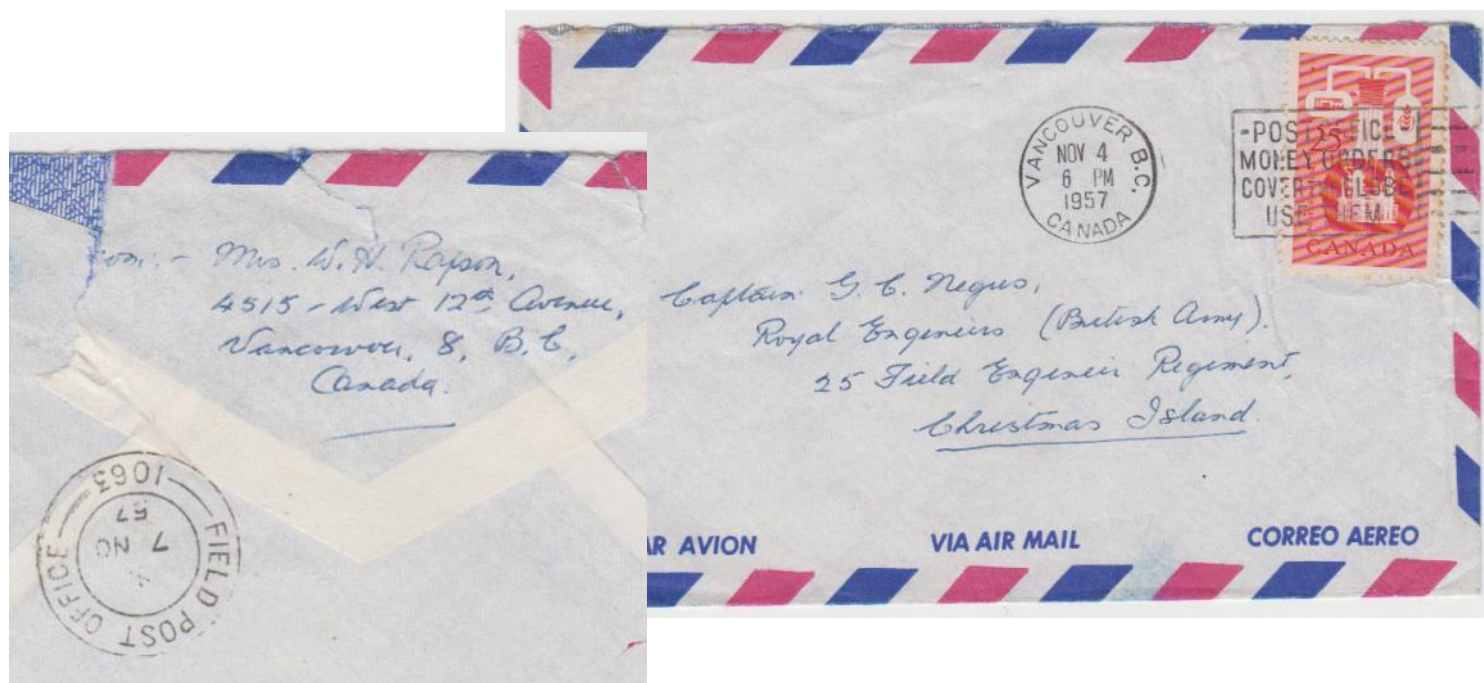 om:- Mrs. W. H. Rapson,
4515 - West 12th Avenue,
Vancouver, 8, B.C,
Canada.
FIELD POST OFFICE
1063
7 NO
57
VANCOUVER B.C.
NOV 4
6 PM
1957
CANADA
-POST OFFICE
MONEY ORDERS
COVER THE GLOBE
USE THEM
25
CANADA
Captain G. C. Negus,
Royal Engineers (British Army).
25 Field Engineer Regiment,
Christmas Island.
AR AVION
VIA AIR MAIL
CORREO AEREO